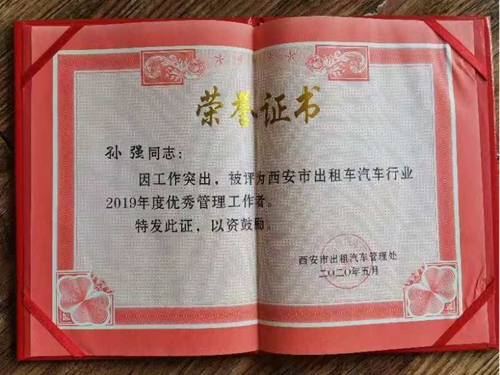 荣誉证书
孙 强同志：
因工作突出，被评为西安市出租车汽车行业
2019年度优秀管理工作者。
特发此证，以资鼓励。
西安市出租汽车管理处
二〇二〇年五月